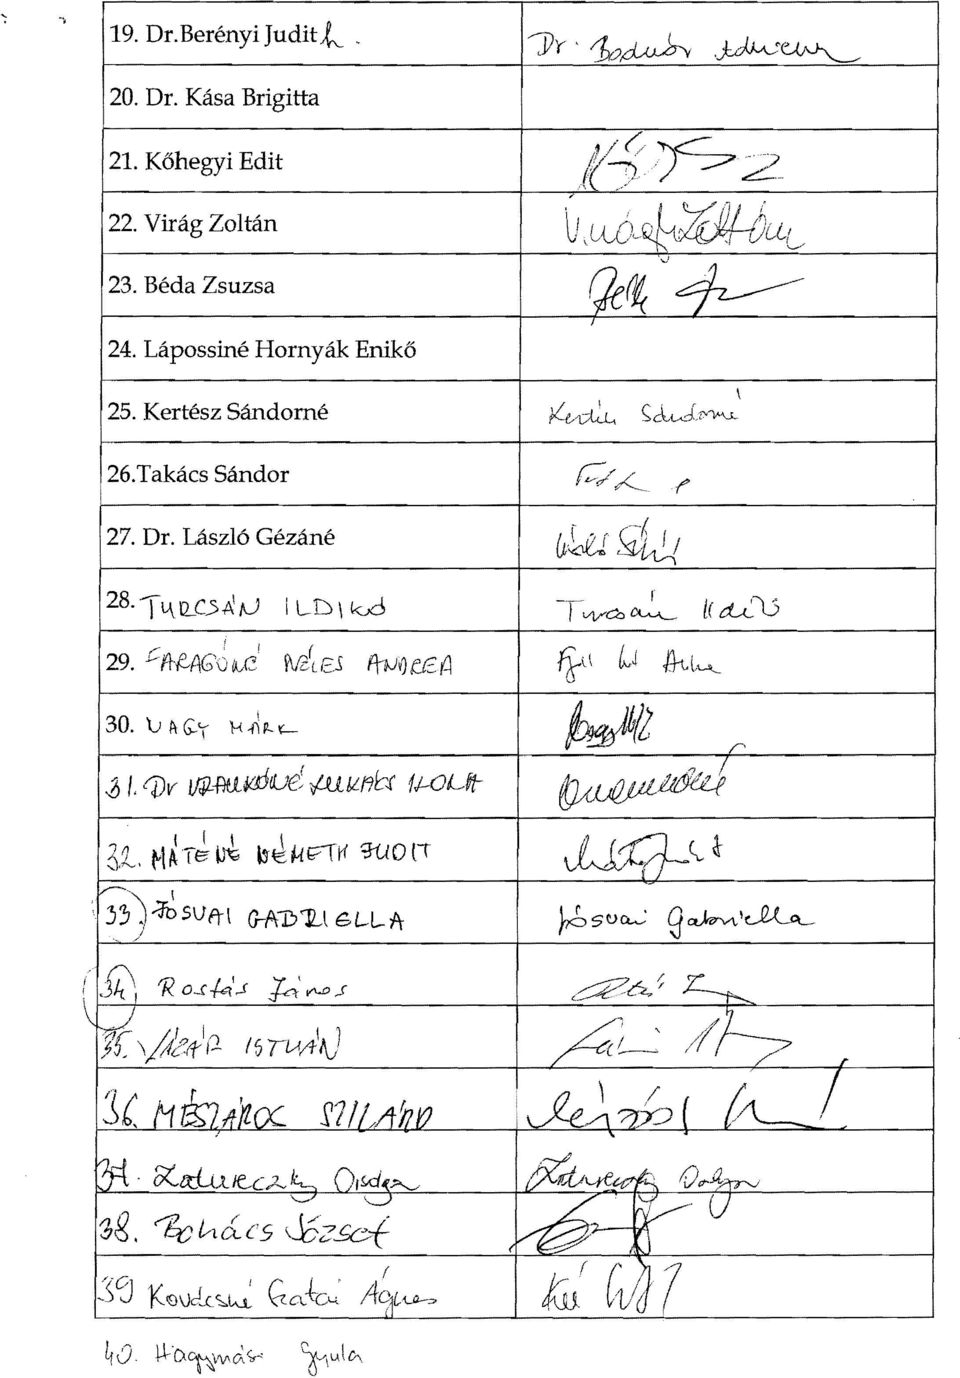 19. Dr.Berényi Judit Dr. Bodnár Adrienn
20. Dr. Kása Brigitta
21. Kőhegyi Edit
22. Virág Zoltán Virág Zoltán
23. Béda Zsuzsa
24. Lápossiné Hornyák Enikő
25. Kertész Sándorné Kertész Sándorné
26.Takács Sándor
27. Dr. László Gézáné
28. TURCSÁN ILDIKÓ Turcsán Ildikó
29. FARAGÓNÉ ANDREA
30. NAGY MÁRK
31. Dr VRANKÓNÉ LUKÁCS ILONA
32. MÁTÉNÉ NÉMETH JUDIT
33.) JÓSVAI GABRIELLA Jósvai Gabriella
34 Rostás János
35. LÁZÁR ISTVÁN
36. MÉSZÁROS SZILÁRD
37. Zatureczky Orsolya
38. Bohács József
39 Kovácsné Gatai Ágnes
40. Hagymási Gyula